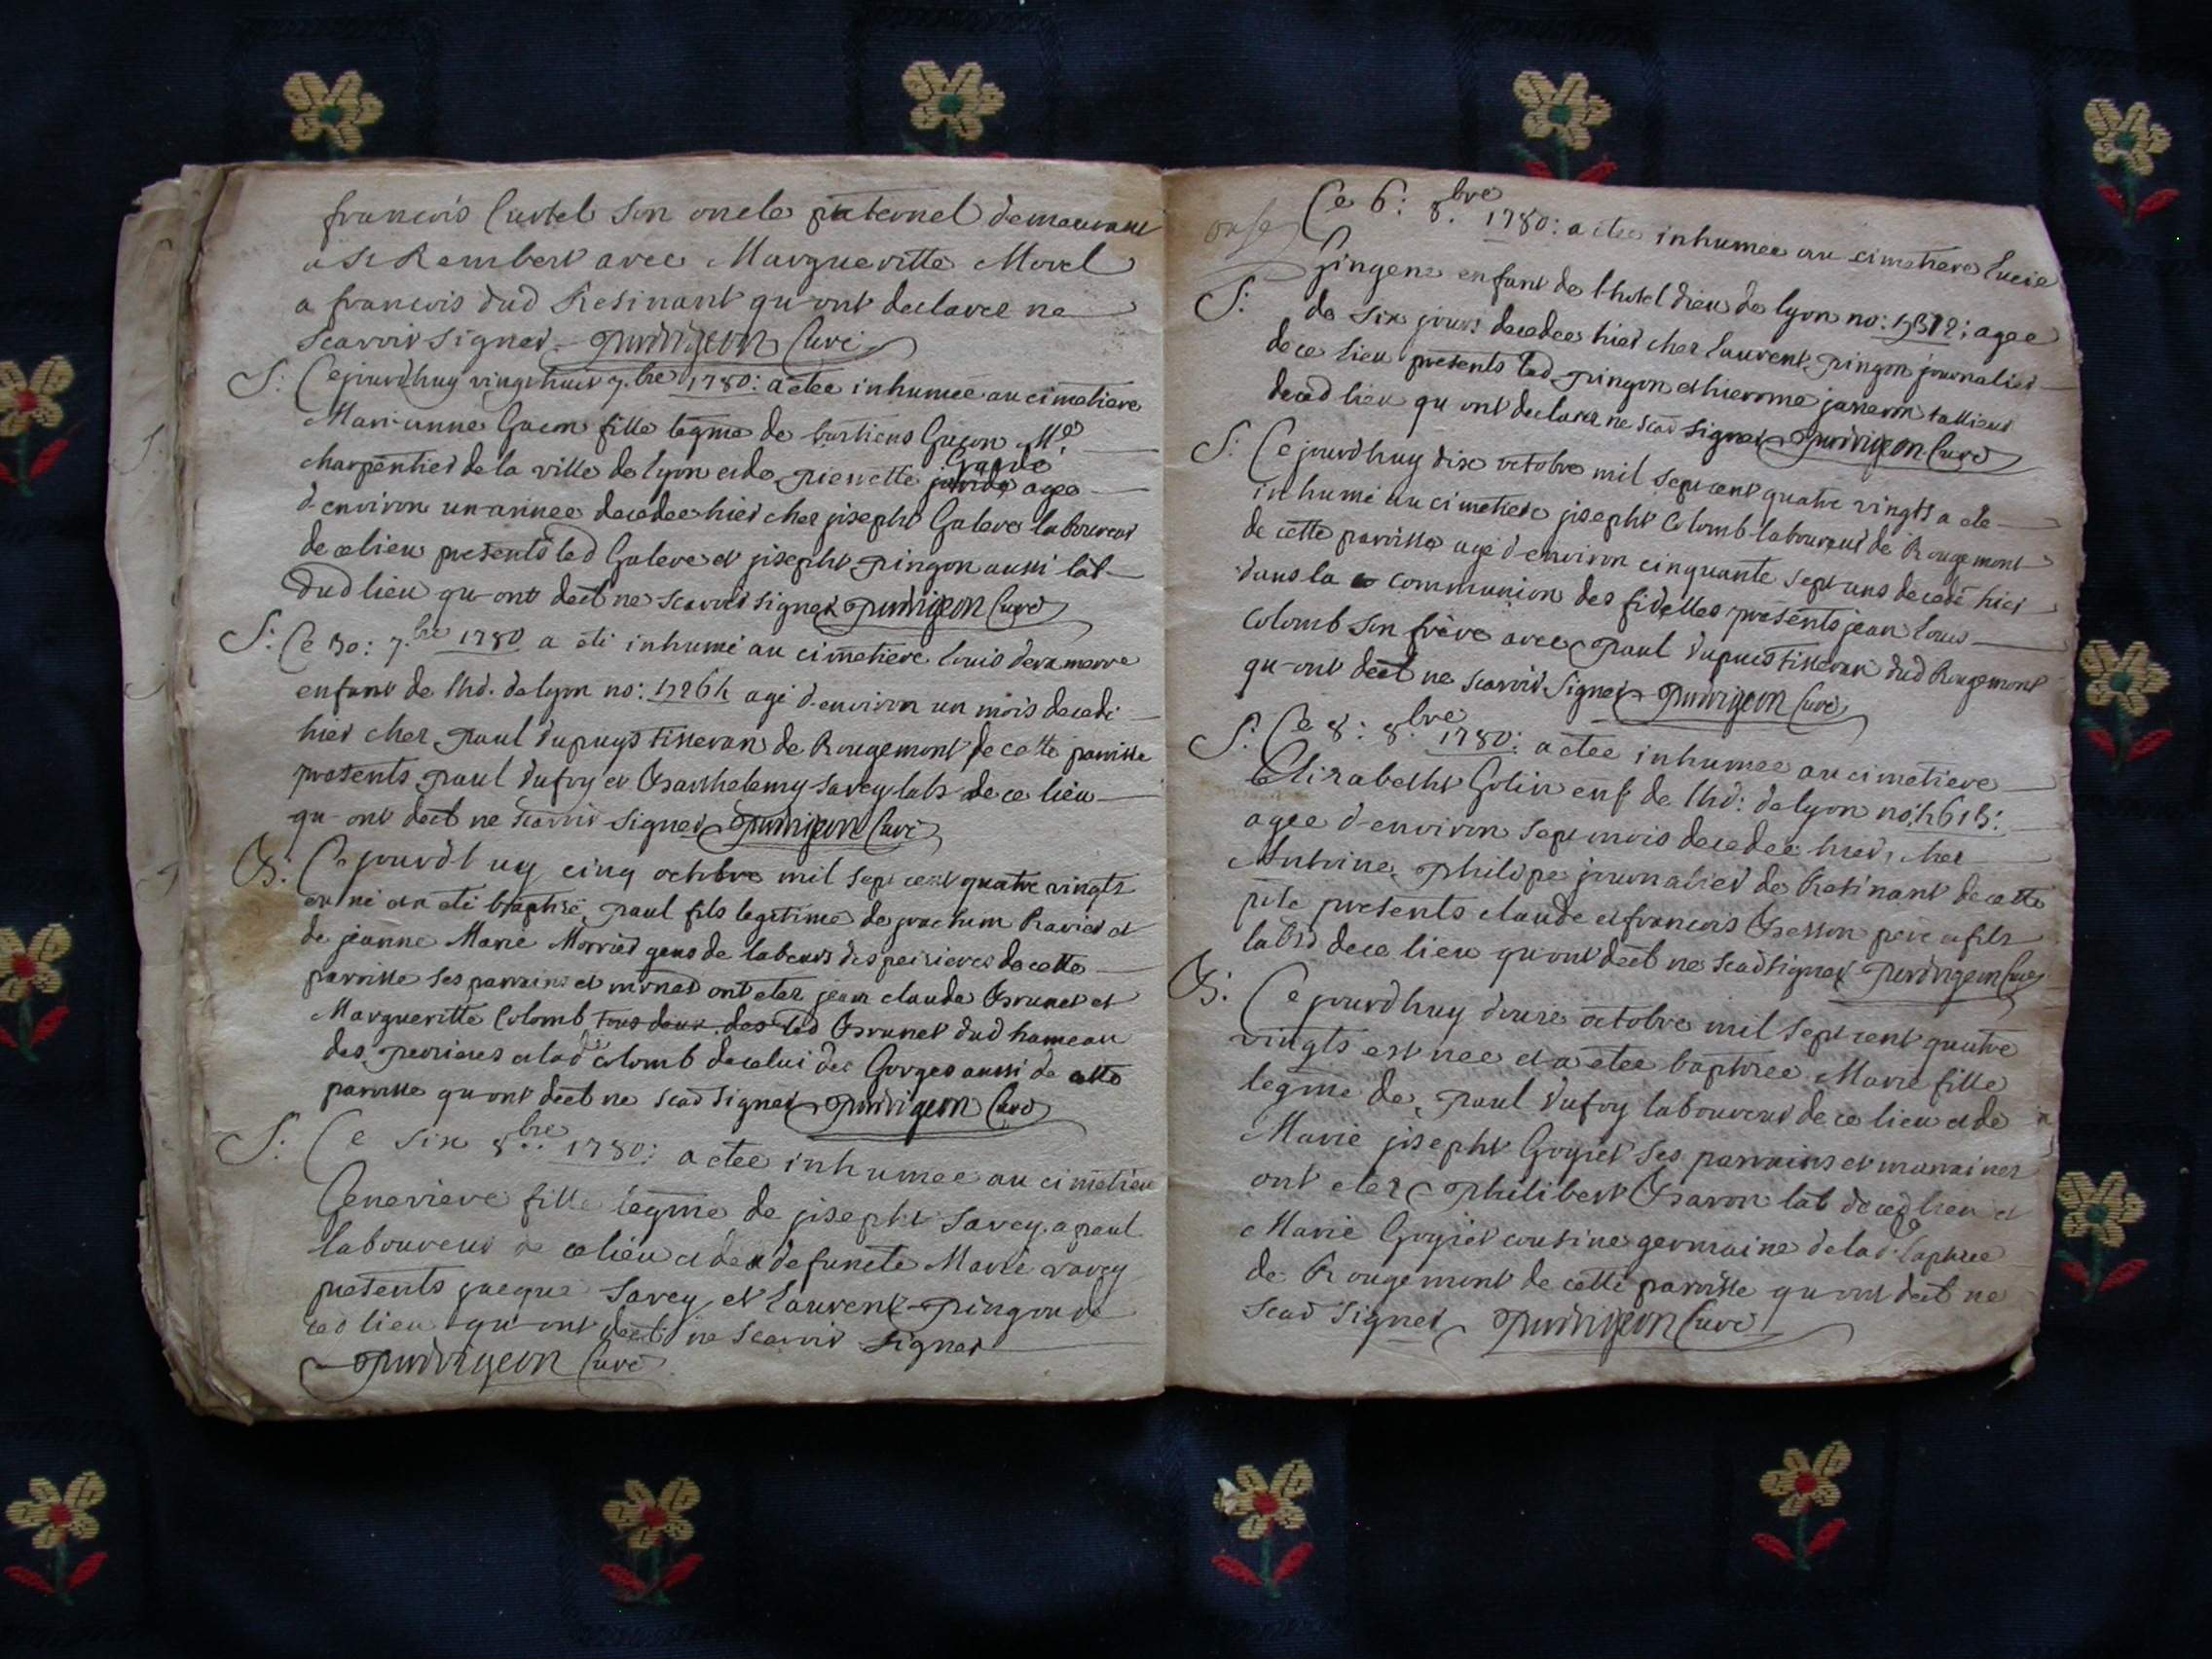 francois Curtel son oncle paternel demeurant
a St Rambert avec Margueritte Morel
a francois dud Resinant qu-ont declaree ne
scavoir signer
Curé
S: Ce jourdhuy vingt huit 7.bre 1780: a etee inhumee au cimetiere
Marianne Gueon fille legme de
charpentier de la ville de lyon et de pierrette agee
d-environ un annee decedee hier chez joseph Galere laboureur
de ce lieu presents led Galere et joseph pingon aussi lab
dud lieu qu-ont declt ne scavoir signer Curé
S: Ce 30: 7.bre 1780 a eté inhumé au cimetiere louis
enfant de lhd. de lyon no: agé d-environ un mois decedé
hier chez paul dupuys tisseran de Rougemont de cette paroisse
presents paul dufoy et Barthelemy Savey labs de ce lieu
qu-ont declt ne scavoir signer Curé
B: Ce jourdhuy cinq octobre mil sept cent quatre vingts
est né et a eté baptisé paul fils legitime de joachim Ravier et
de jeanne Marie gens de labeurs des perieres de cette
paroisse ses parrains et ont etez jean claude Brunet et
Margueritte Colomb tous deux des led Brunet dud hameau
des perieres et lad Colomb de celui des Gorges aussi de cette
paroisse qu-ont declt ne scav signer Curé
S: Ce six 8bre 1780: a etee inhumee au cimetiere
Genevieve fille legme de joseph Savey a paul
laboureur de ce lieu et de defuncte Marie
presents jacque Savey et laurent pingon de
ced lieu qu-ont declt ne scavoir signer
Curé
Ce 6: 8.bre 1780: a etee inhumee au cimetiere Lucie
enfant de l-hotel dieu de lyon no: agee
S: de six jours decedee hier chez laurent pingon journalier
de ce lieu presents led pingon et hierome janeron tallieur
deced lieu qu ont declaree ne scav signer Curé
S: Ce jourdhuy dix octobre mil sept cent quatre vingts a ete
inhumé au cimetiere joseph Colomb laboureur de Rougemont
de cette paroisse agé d-environ cinquante sept ans decedé hier
dans la communion des fidelles presents jean louis
Colomb son frère avec paul dupuis tisseran dud Rougemont
qu-ont declt ne scavoir signer Curé
S: Ce 8: 8.bre 1780: a etee inhumee au cimetiere
Elizabeth Golin enf de lhd: de lyon no:
agee d-environ sept mois decedee hier chez
Antoine philipe journalier de Resinant de cette
pste presents claude et francois Besson pere et fils
labrs de ce lieu qu-ont declt ne scav signer Curé
B: Ce jourdhuy douze octobre mil sept cent quatre
vingts est nee et a etee baptisee Marie fille
legme de paul dufoy laboureur de ce lieu et de
Marie joseph Goyiet ses parrains et marraines
ont etez philibert Baron lab deced lieu et
Marie Goyiet cousine germaine de lad baptisee
de Rougemont de cette paroisse qu-ont declt ne
scav signer Curé